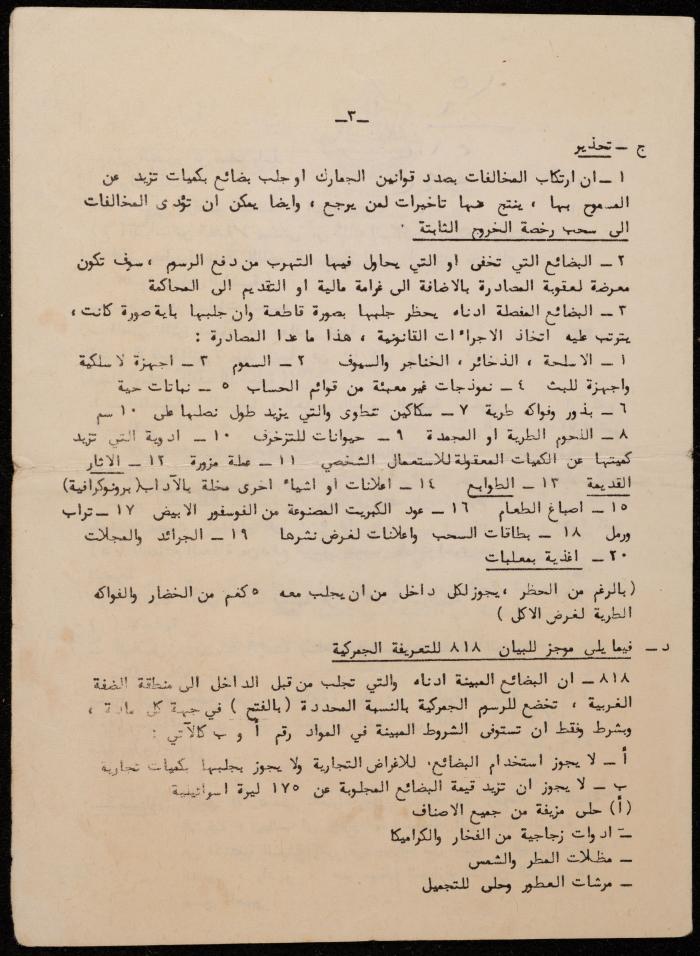 –٣–
ج – تحذير
١ – ان ارتكاب المخالفات بصدد قوانين الجمارك او جلب بضائع بكميات تزيد عن
المسموح بها ، ينتج عنها تاخيرات لمن يرجع ، وايضا يمكن ان تؤدى المخالفات
الى سحب رخصة الخروج الثابتة .
٢ – البضائع التي تخفى او التي يحاول فيها التهرب من دفع الرسوم ، سوف تكون
معرضة لعقوبة المصادرة بالاضافة الى غرامة مالية او التقديم الى المحاكمة
٣ – البضائع المفصلة ادناه يحظر جلبها بصورة قاطعة وان جلبها باية صورة كانت ،
يترتب عليه اتخاذ الاجراءات القانونية ، هذا ما عدا المصادرة :
١ – الاسلحة ، الذخائر ، الخناجر والسيوف ٢ – السموم ٣ – اجهزة لاسلكية
واجهزة للبث ٤ – نموذجات غير معبئة من قوائم الحساب ٥ – نباتات حية
٦ – بذور وفواكه طرية ٧ – سكاكين تنطوى والتي يزيد طول نصلها على ١٠ سم
٨ – اللحوم الطرية او المجمدة ٩ – حيوانات للتزخرف ١٠ – ادوية التي تزيد
كميتها عن الكميات المعقولة للاستعمال الشخصي ١١ – عملة مزورة ١٢ – الاثار
القديمة ١٣ – الطوابع ١٤ – اعلانات او اشياء اخرى مخلة بالآداب (برونوكرافية)
١٥ – اصباغ الطعام ١٦ – عود الكبريت المصنوعة من الفوسفور الابيض ١٧ – تراب
ورمل ١٨ – بطاقات السحب واعلانات لغرض نشرها ١٩ – الجرائد والمجلات
٢٠ – اغذية بمعلبات
(بالرغم من الحظر ، يجوز لكل داخل من ان يجلب معه ٥ كغم من الخضار والفواكه
الطرية لغرض الاكل )
د – فيما يلي موجز للبيان ٨١٨ للتعريفة الجمركية
٨١٨ – ان البضائع المبينة ادناه والتي تجلب من قبل الداخل الى منطقة الضفة
الغربية ، تخضع للرسوم الجمركية بالنسبة المحددة (بالفتح ) في جهة كل مادة ،
وبشرط وفقط ان تستوفى الشروط المبينة في المواد رقم أ و ب كالآتي :
أ – لا يجوز استخدام البضائع للاغراض التجارية ولا يجوز بجلبها بكميات تجارية
ب – لا يجوز ان تزيد قيمة البضائع المجلوبة عن ١٧٥ ليرة اسرائيلية
(أ) حلى مزيفة من جميع الاصناف
– ادوات زجاجية من الفخار والكراميكا
– مظلات المطر والشمس
– مرشات العطور وحلى للتجميل